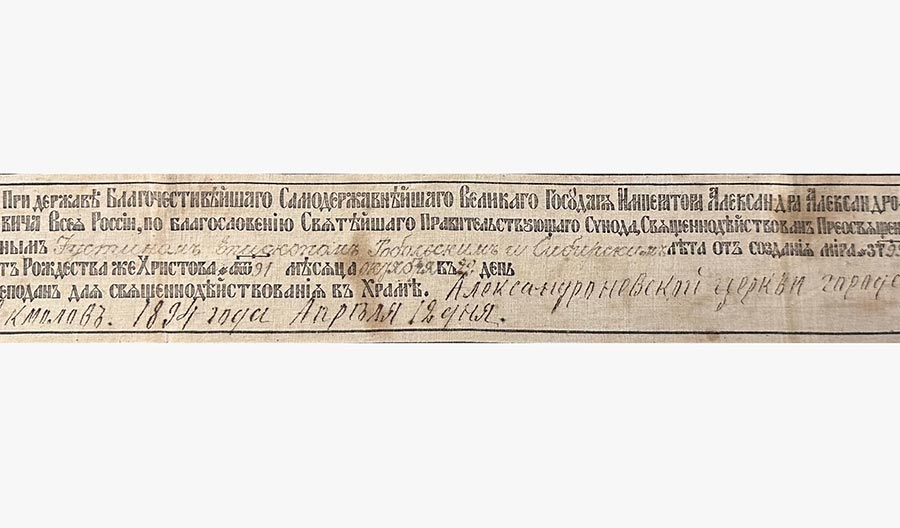 При державѣ Благочестивѣйшаго Самодержавнѣйшаго Великаго Государѧ Императора Александра Александро-
вича Всеѧ Россіи, по благословенію Свѧтѣйшаго Правительствующаго Сѵнода, Свѧщеннодѣйствованъ Преосвѧщен
нымъ Іустиномъ Епископомъ Тобольскимъ и Сибирскимъ лѣта отъ созданіѧ міра
тъ Рождества же Христова 91 мѣсѧца октября въ день
еподанъ длѧ свѧщеннодѣйствованіѧ въ Храмѣ. Александроневской церкви города
Акмоловъ. 1894 года Апрѣля 12 дня.